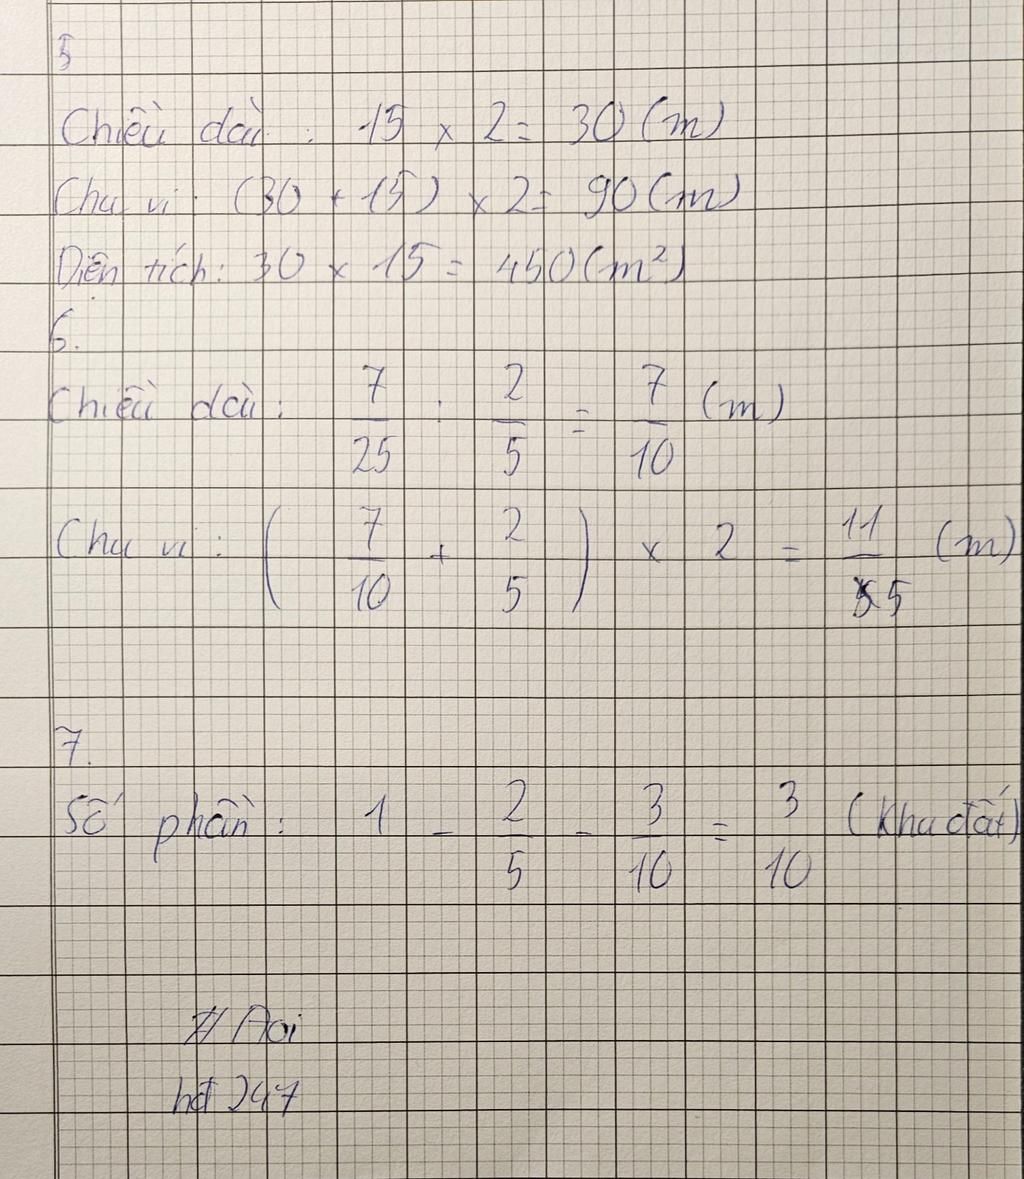 5
Chiều dài : 15 × 2 = 30 (m)
Chu vi : (30 + 15) × 2 = 90 (m)
Diện tích : 30 × 15 = 450 (m²)
6.
Chiều dài : 7/25 : 2/5 = 7/10 (m)
Chu vi : (7/10 + 2/5) × 2 = 11/5 (m)
7.
Số phần : 1 - 2/5 - 3/10 = 3/10 (khu đất)
# Aoi
hđ 247